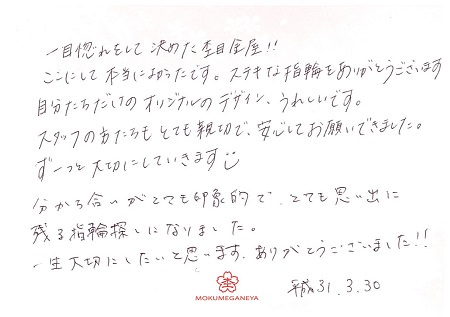 一目惚れをして決めた杢目金屋!!
ここにして本当によかったです。ステキな指輪をありがとうございます
自分たちだけのオリジナルのデザイン、うれしいです。
スタッフの方たちもとても親切で、安心してお願いできました。
ずーっと大切にしていきます
分かち合いがとても印象的で、とても思い出に
残る指輪探しになりました。
一生大切にしたいと思います。ありがとうございました!!
平成31.3.30
杢
MOKUMEGANEYA